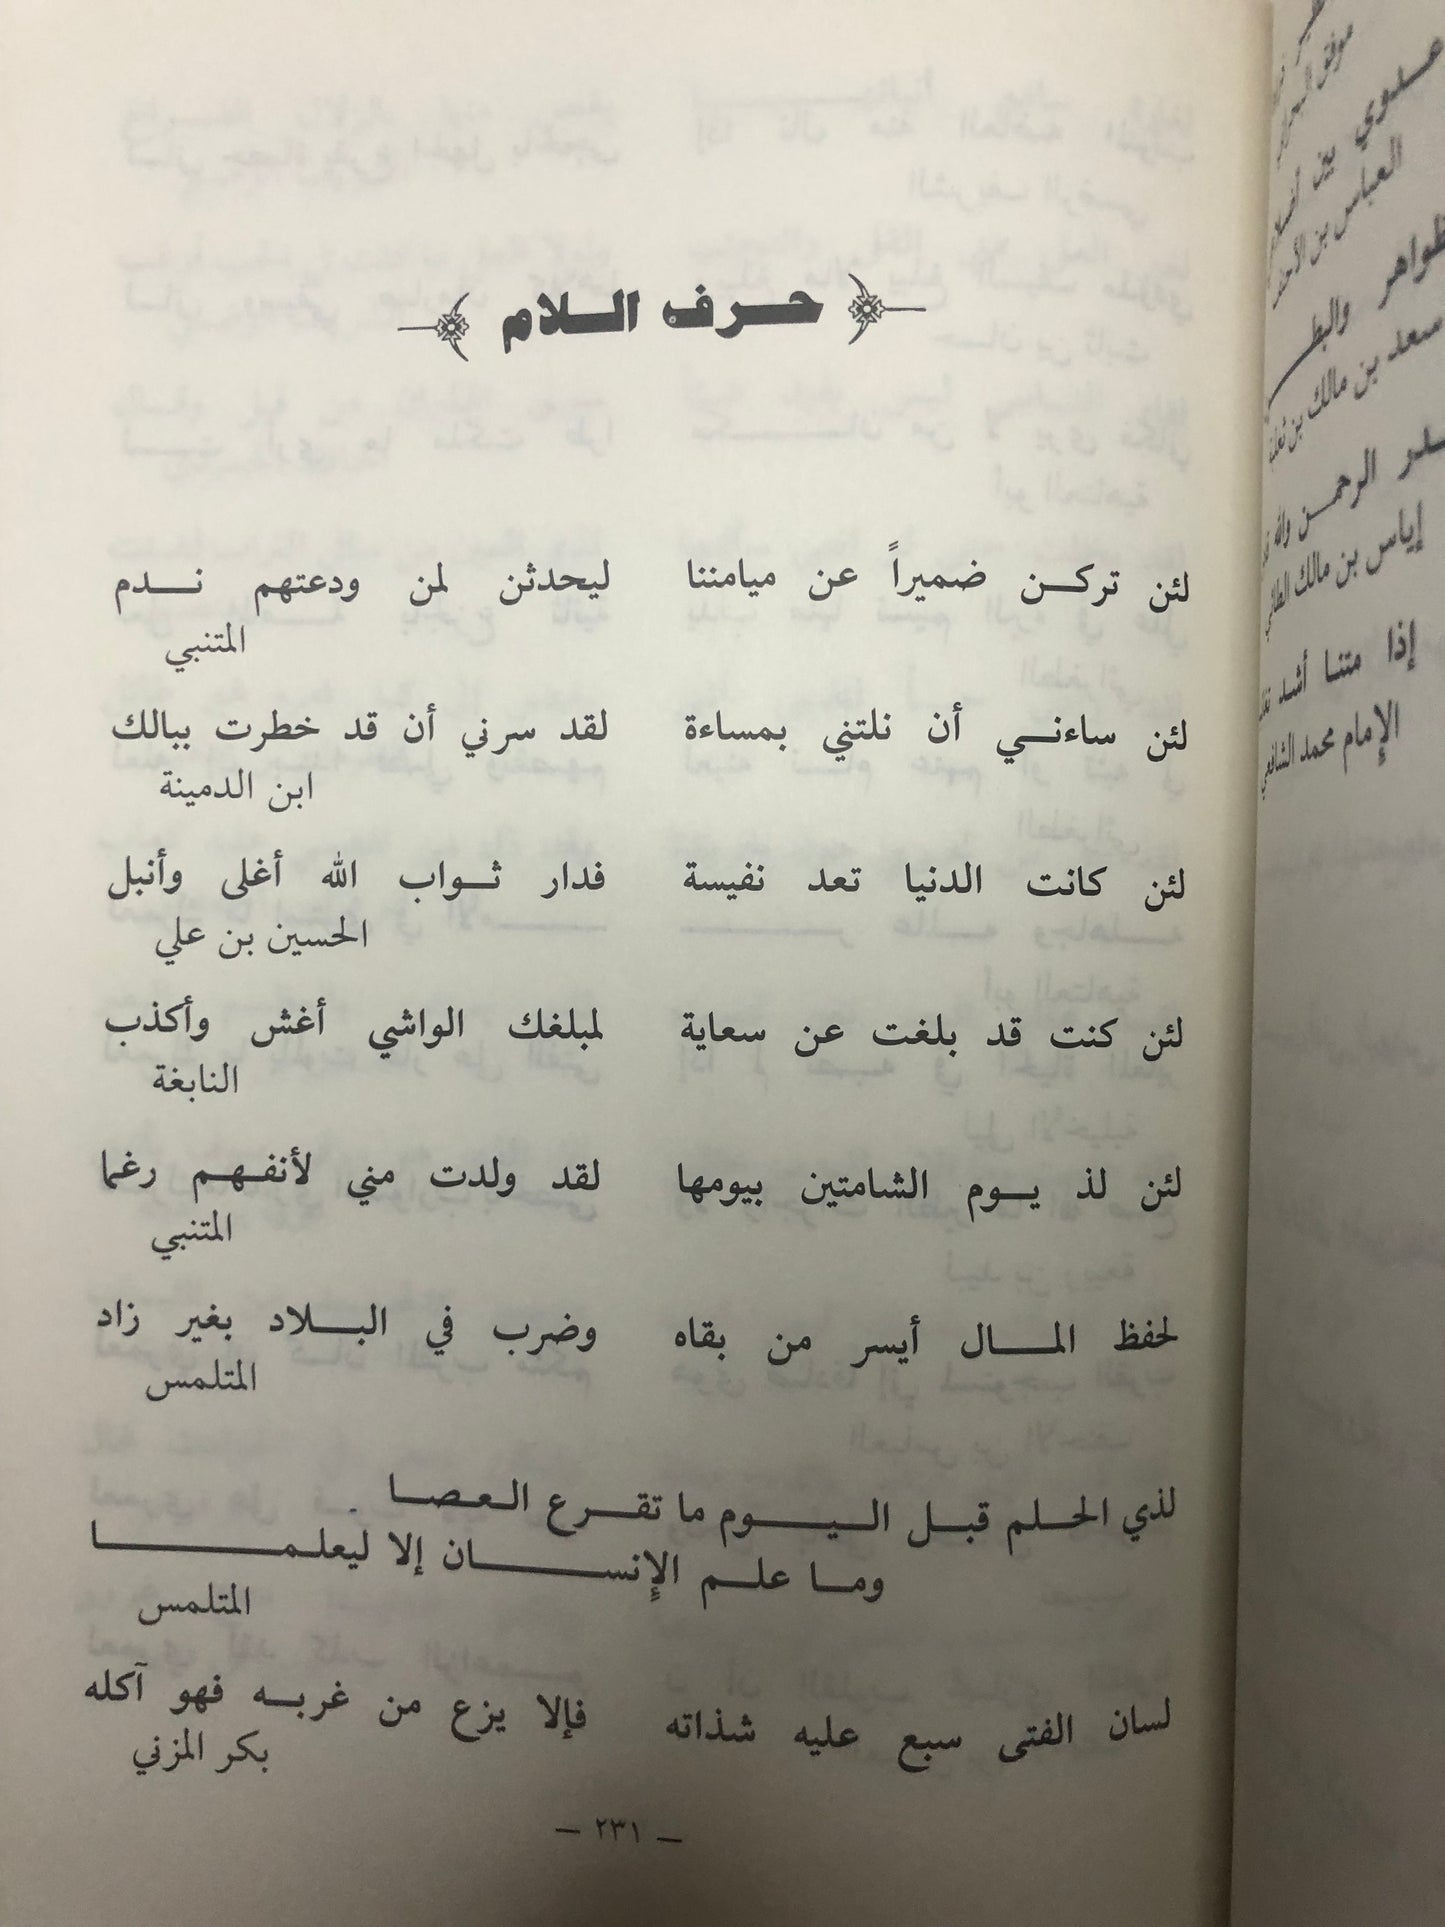 حرف اللام
لئن تركن ضميراً عن ميامننا ليحدثن لمن ودعتهم ندم
المتنبي
لئن ساءني أن نلتني بمساءة لقد سرني أن قد خطرت ببالك
ابن الدمينة
لئن كانت الدنيا تعد نفيسة فدار ثواب الله أغلى وأنبل
الحسين بن علي
لئن كنت قد بلغت عن سعاية لمبلغك الواشي أغش وأكذب
النابغة
لئن لذ يوم الشامتين بيومها لقد ولدت مني لأنفهم رغما
المتنبي
لحفظ المال أيسر من بقاه وضرب في البلاد بغير زاد
المتلمس
لذي الحلم قبل اليوم ما تقرع العصا
وما علم الإنسان إلا ليعلما
المتلمس
لسان الفتى سبع عليه شذاته فإلا يزع من غربه فهو آكله
بكر المزني
— ٢٣١ —
علوي بين
العباس بن الأحنف
ظواهر والبط
سعد بن مالك بن
الرحمن والله
إياس بن مالك الطائي
إذا متنا أشد
الإمام محمد الشافعي